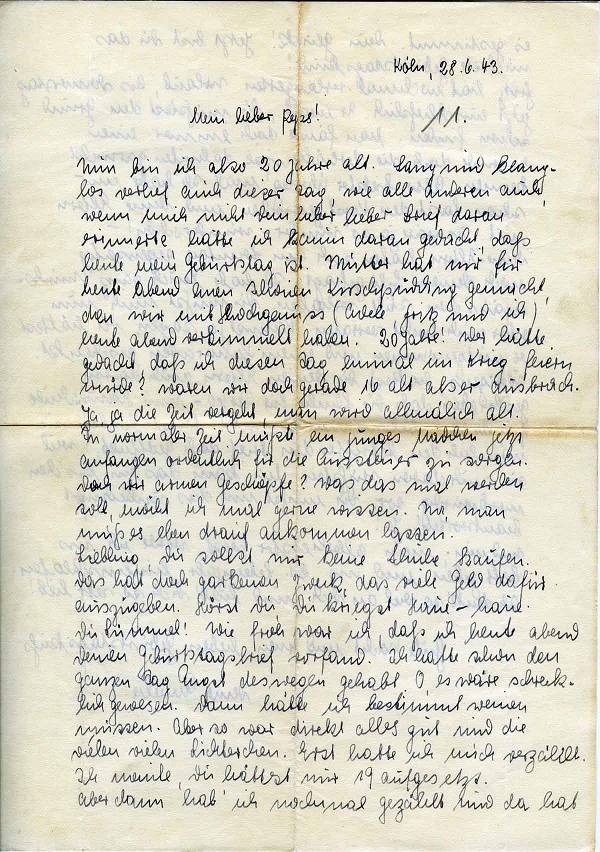 Köln, 28.6.43.
Mein lieber
11.
Nun bin ich also 20 Jahre alt. Sang und Klang-
los verlief auch dieser Tag, wie alle anderen auch,
wenn mich nicht Dein lieber, lieber Brief daran
erinnerte, hätte ich kaum daran gedacht, daß
heute mein Geburtstag ist. Mutter hat mir für
heute Abend einen schönen Kirschpudding gemacht
den wir mit Hochgenuß ( Fritz und ich)
heute abend verkimmelt haben. 20 Jahre! Wer hätte
gedacht, daß ich diesen Tag einmal im Krieg feiern
würde? waren wir doch gerade 16 alt als er ausbrach.
Ja, ja die Zeit vergeht, man wird allmälich alt.
In normaler Zeit müßte ein junges Mädchen jetzt
anfangen ordentlich für die Aussteuer zu sorgen.
Doch wir armen Geschöpfe? Was das mal werden
soll, möcht ich mal gerne wissen. Na man
muß es eben drauf ankommen lassen.
Liebling, Du sollst mir keine Schuhe kaufen.
Das hat doch garkeinen Zweck, das viele Geld dafür
auszugeben. Hörst Du, Du kriegst Haue – haue.
Du Lümmel! Wie froh war ich, daß ich heute abend
Deinen Geburtstagsbrief vorfand. Ich hatte schon den
ganzen Tag Angst deswegen gehabt. O es wäre schreck-
lich gewesen. Dann hätte ich bestimmt weinen
müssen. Aber so war direkt alles gut und die
vielen vielen Lichterchen. Erst hatte ich mich verzählt.
Ich meinte, Du hättest nur 19 aufgesetzt.
Aber dann hab' ich nochmal gezählt und da hab